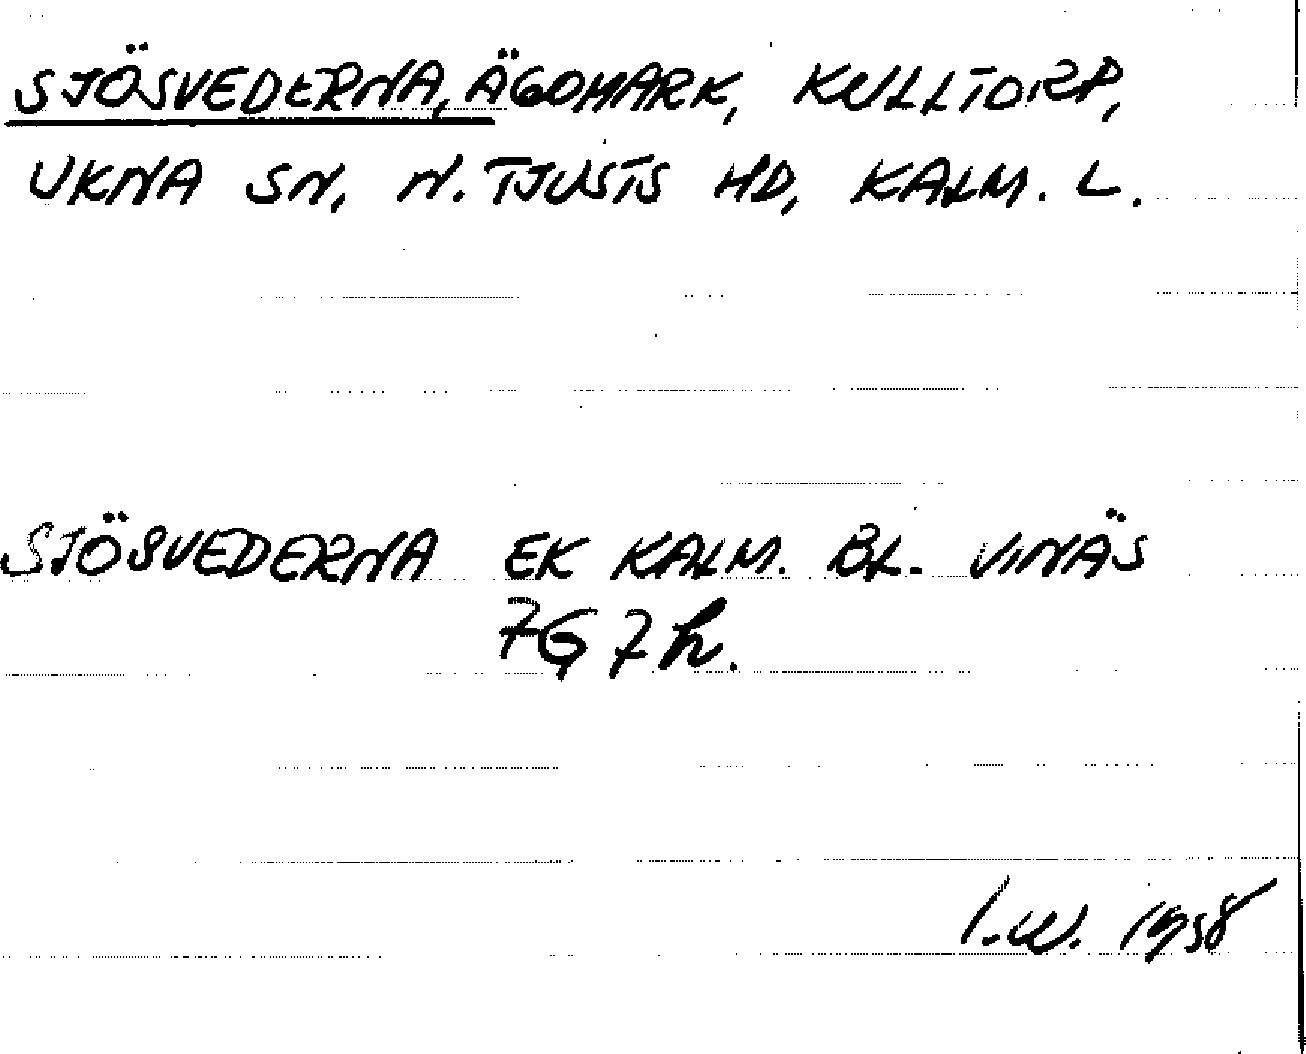 SJÖSVEDERNA, ÄGOMARK, KULLTORP,
UKNA SN, N. TJUSTS HD, KALM. L.
SJÖSVEDERNA EK KALM. BL. VINÄS
7G 7h.
I.W. 1958